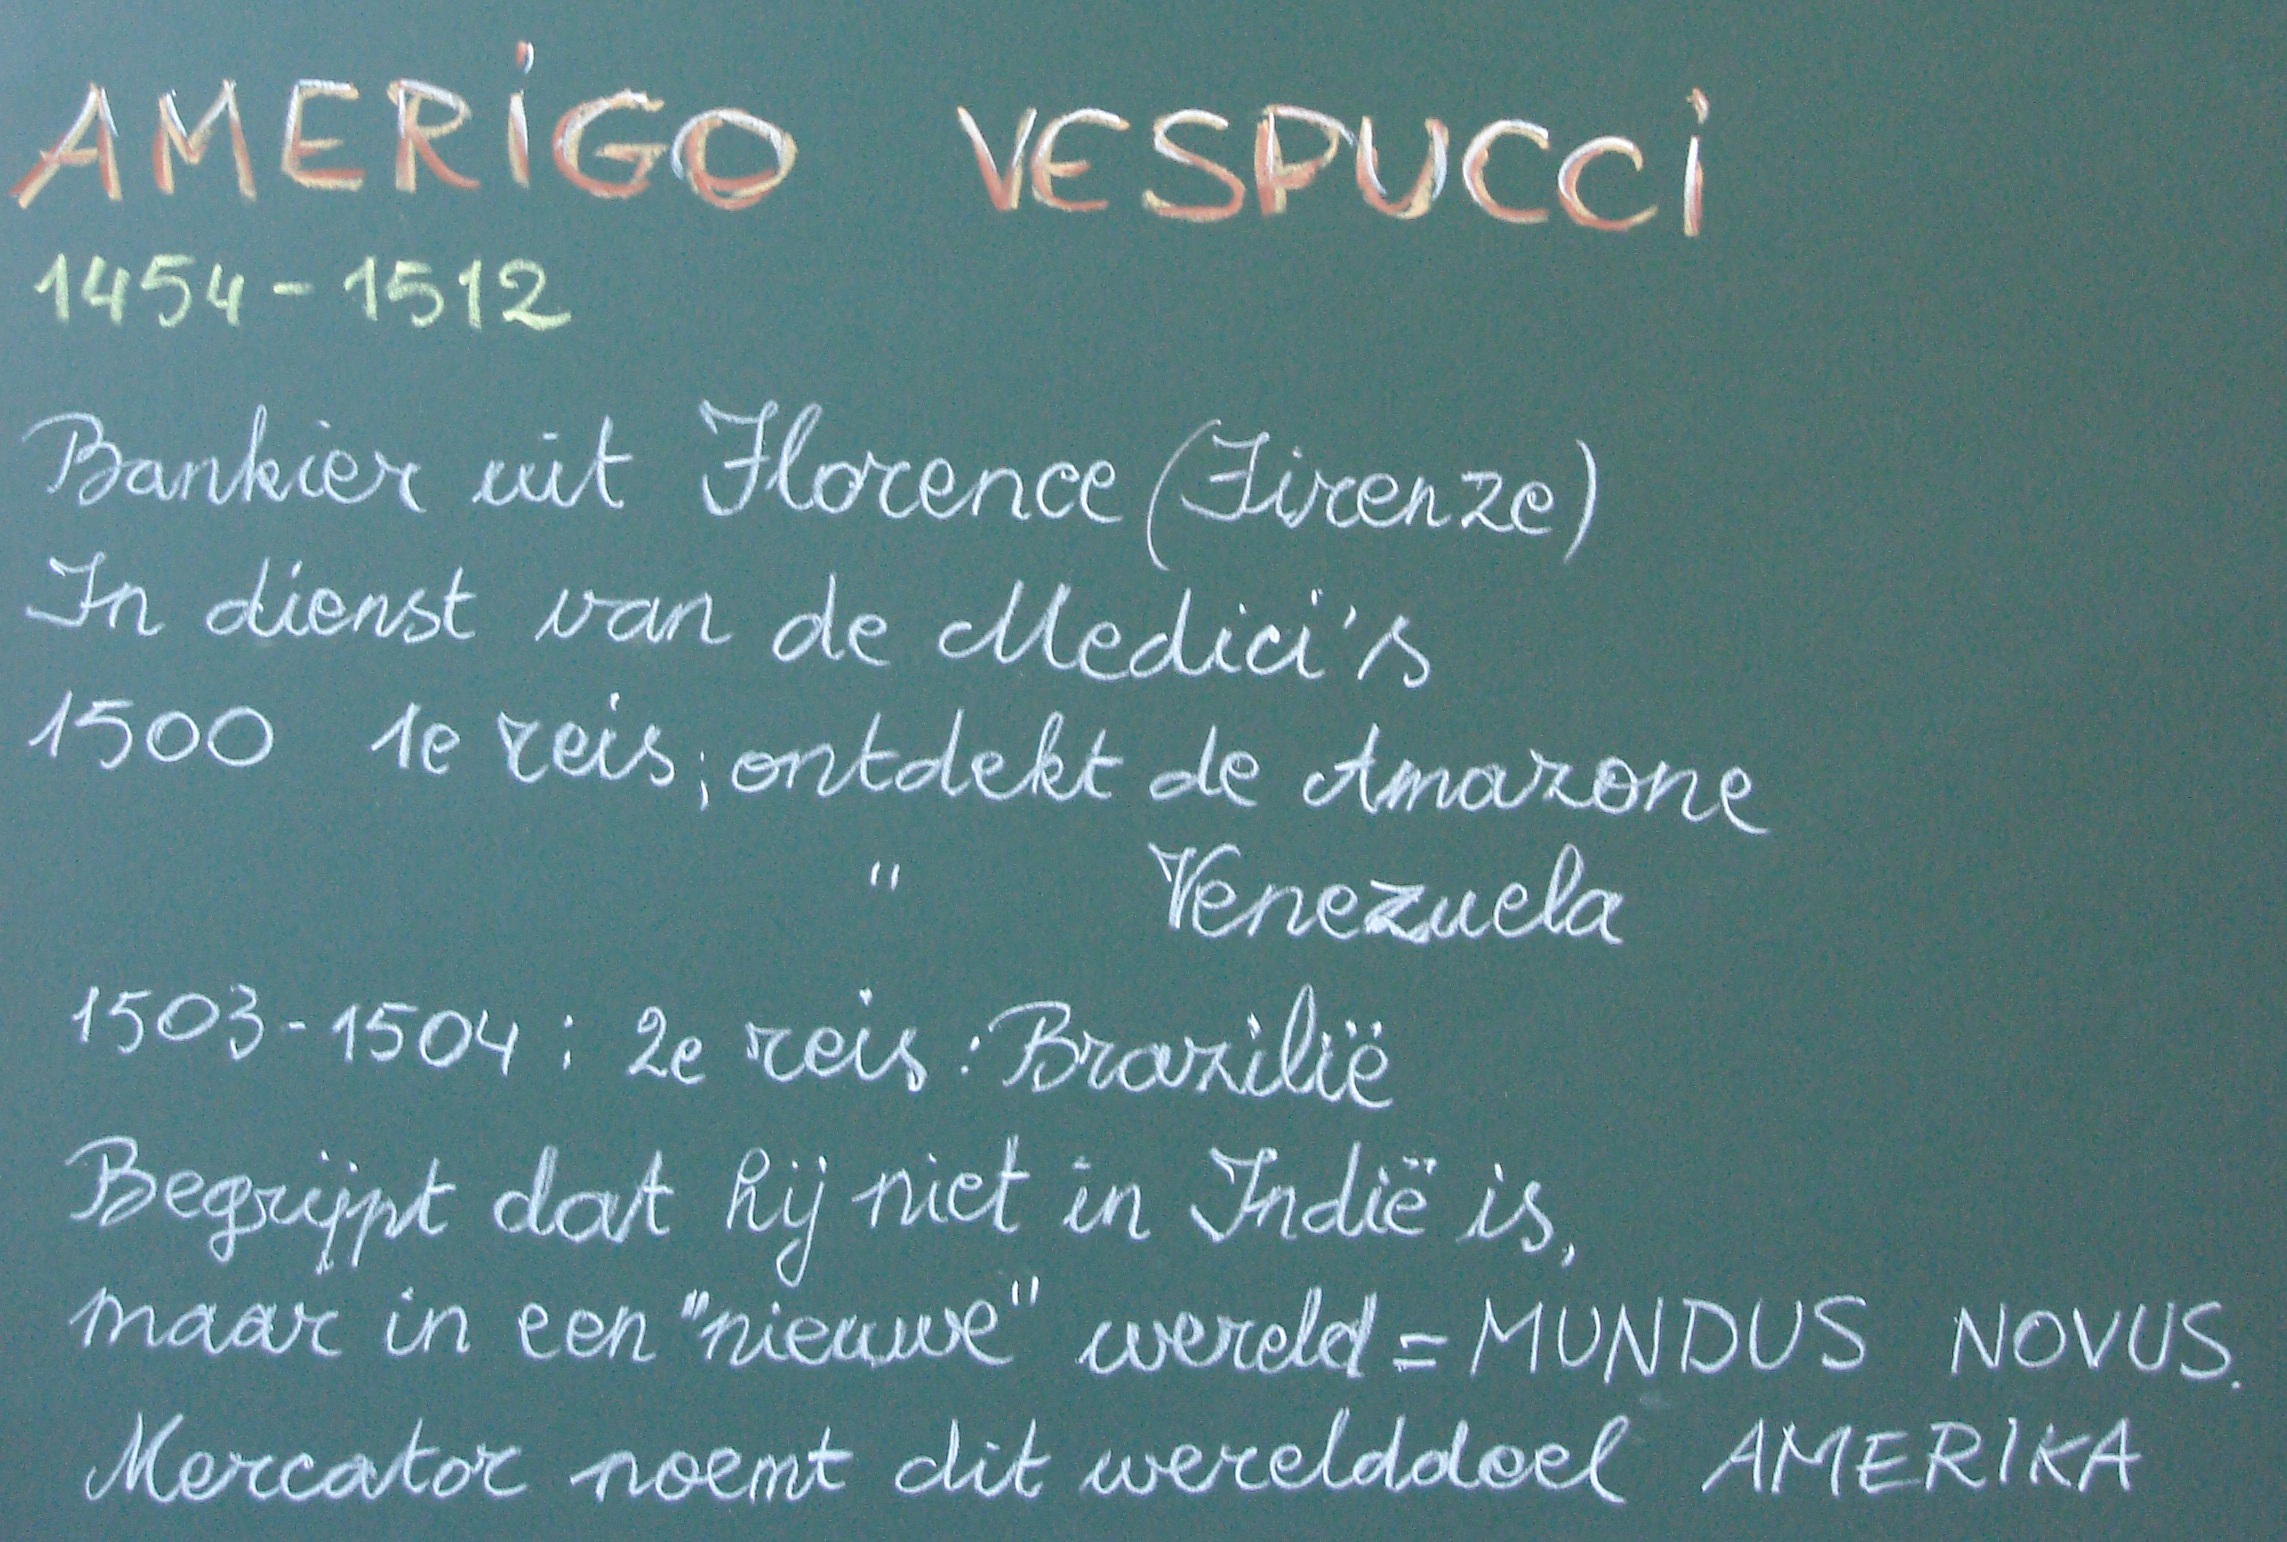 AMERIGO VESPUCCI
1454-1512
Bankier uit Florence (Firenze)
In dienst van de Medici's
1500 1e reis; ontdekt de Amazone
" Venezuela
1503-1504 : 2e reis : Brazilië
Begrijpt dat hij niet in Indië is,
maar in een "nieuwe" wereld = MUNDUS NOVUS.
Mercator noemt dit werelddeel AMERIKA